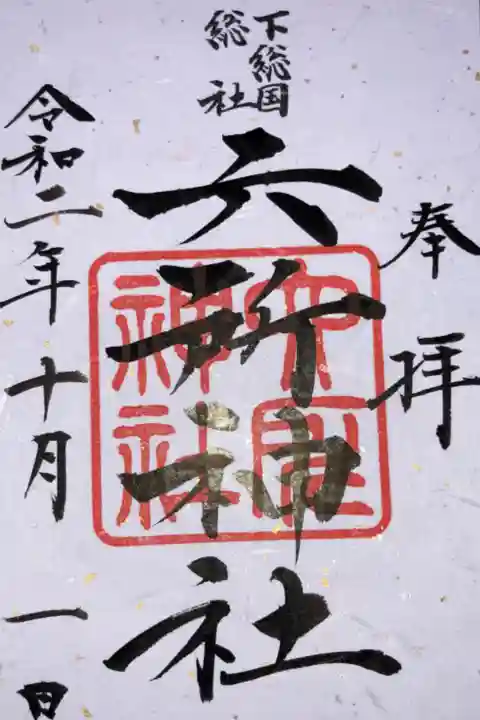 奉拝
下総国
総社
六所神社
神社
令和二年十月一日